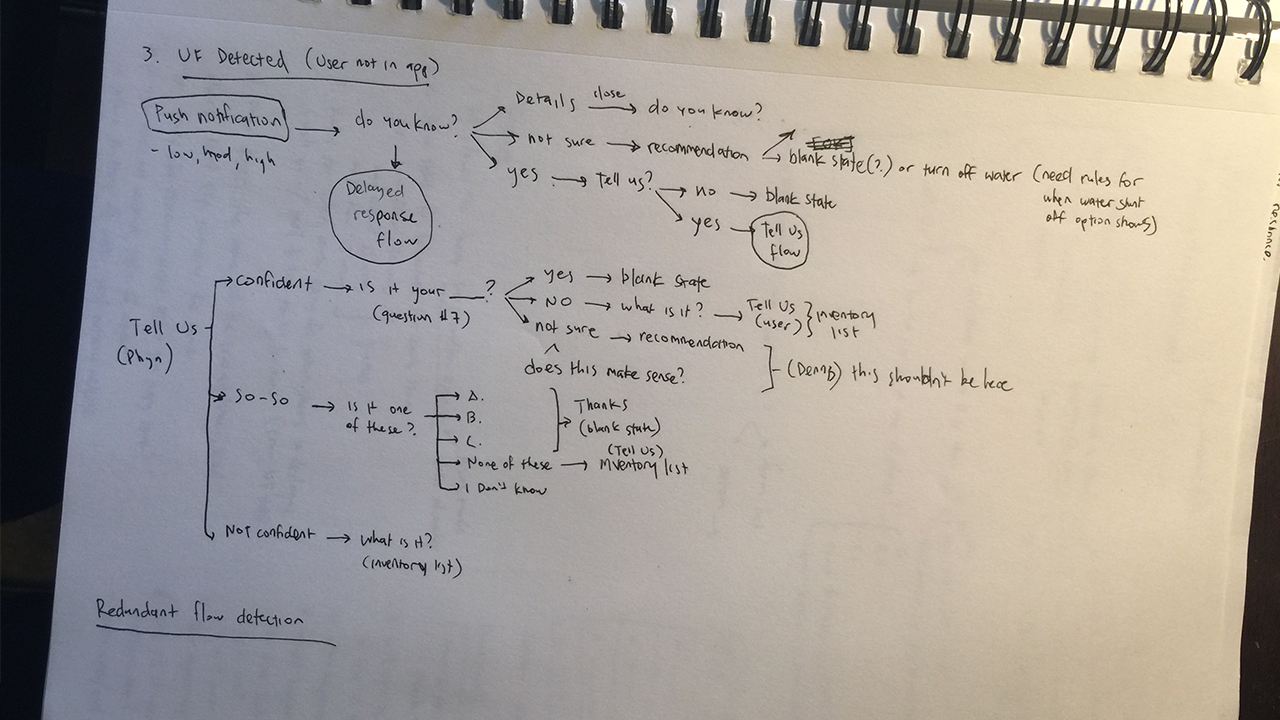 3. UF Detected (User not in app)
Push notification → do you know? → Details close → do you know?
- low, mod, high
→ not sure → recommendation → blank state(?) or turn off water (need rules for
when water shut
off option shows)
→ yes → Tell us? → no → blank state
→ yes → Tell Us
flow
Delayed
response
flow
Tell Us
(Phyn)
confident → Is it your ____? → yes → blank state
(question #7)
→ NO → what is it? → Tell Us
(user) } inventory
list
→ not sure → recommendation
does this make sense?
(Dennis) this shouldn't be here
So-So → Is it one
of these?
A.
B.
C.
Thanks
(blank state)
None of these → (Tell Us)
inventory list
I Don't know
Not confident → what is it?
(inventory list)
Redundant flow detection